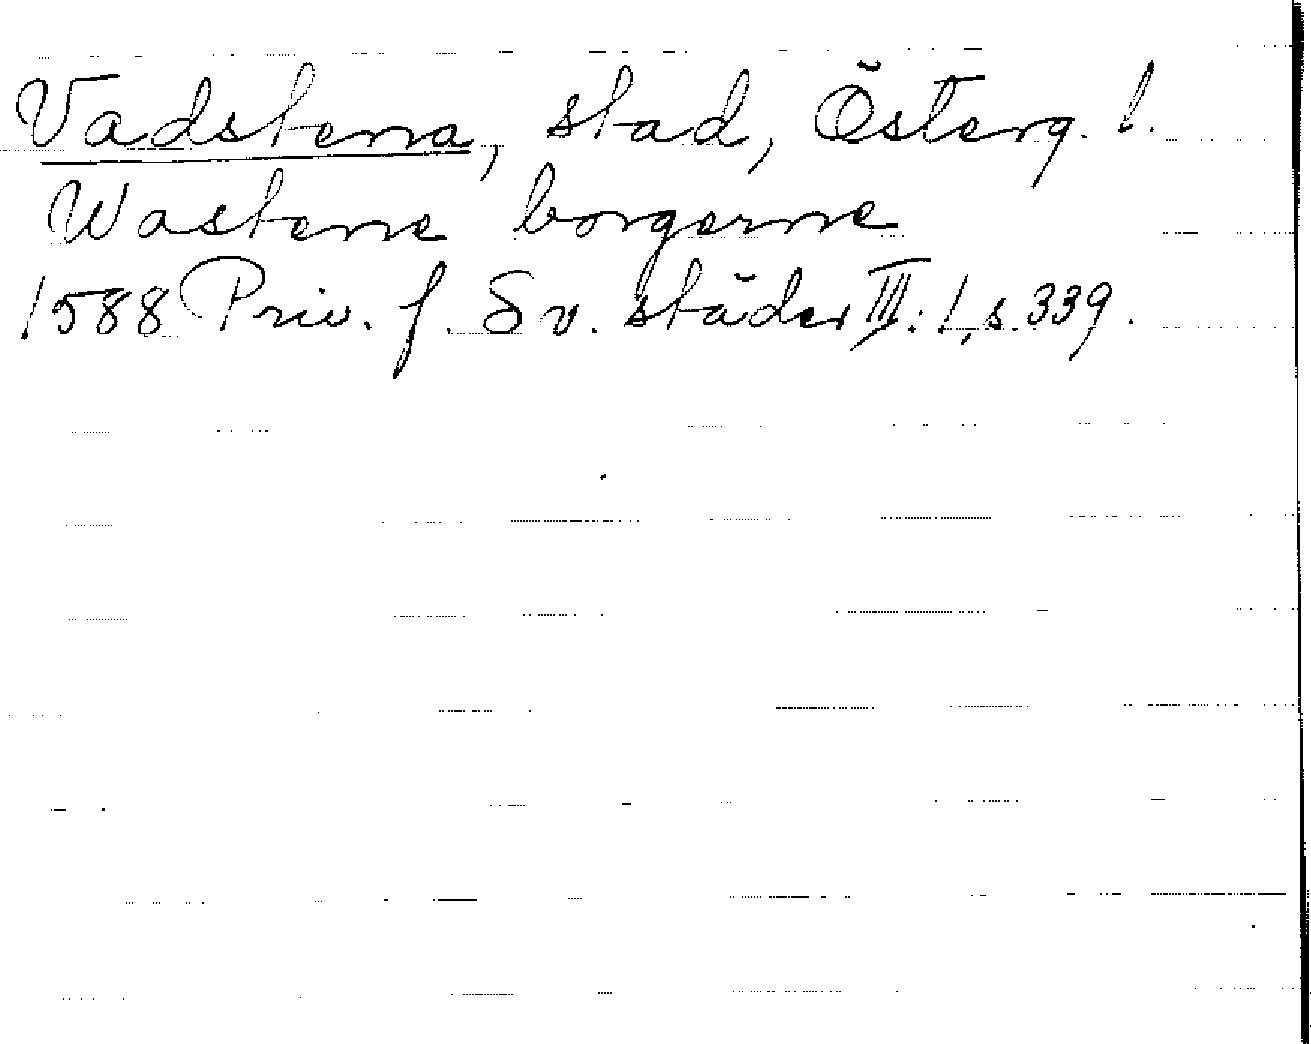 Vadstena, stad, Österg. l.
Wastene borgerne
1588 Priv. f. Sv. städer III: 1, s. 339.